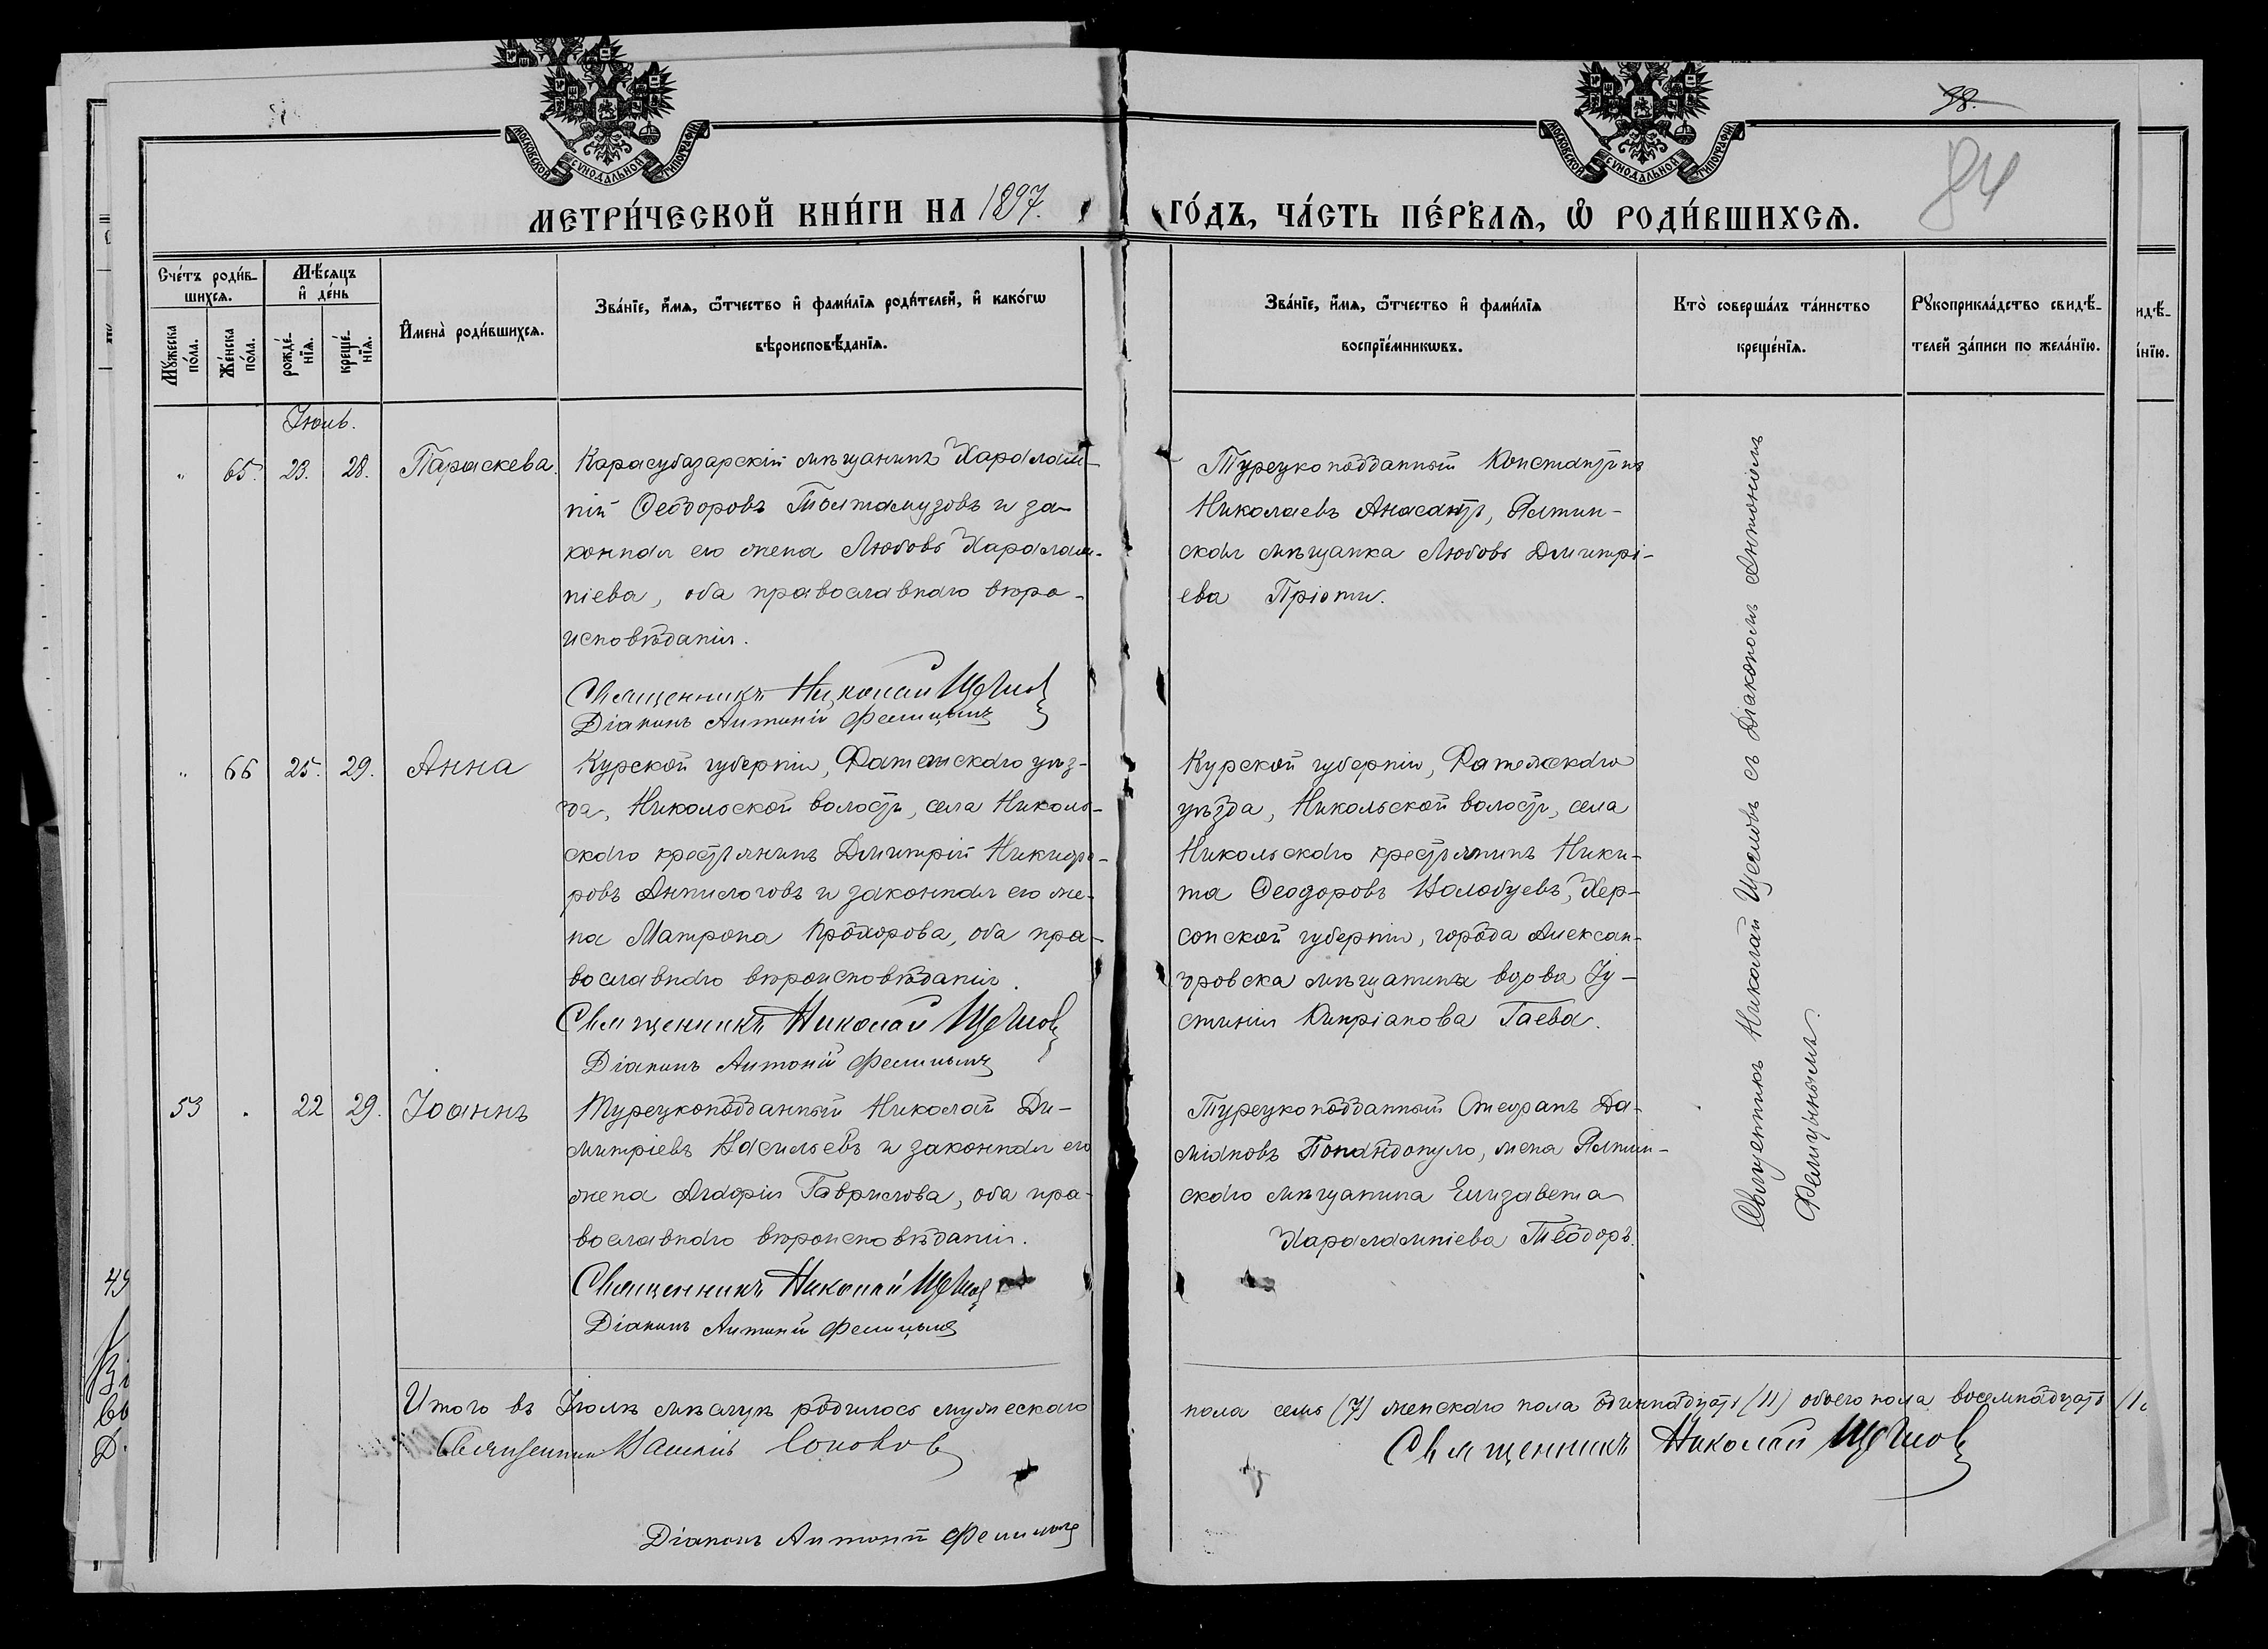 МОСКОВСКОЙ СѴНОДАЛЬНОЙ ТИПОГРАФІИ
МОСКОВСКОЙ СѴНОДАЛЬНОЙ ТИПОГРАФІИ
98.
84
МЕТРИ́ЧЕСКОЙ КНИ́ГИ НА 1897. ГО́ДЪ, ЧА́СТЬ ПЕ́РВАѦ, Ѡ РОДИ́ВШИХСѦ.
Сче́тъ роди́в-
шихсѧ.
Мꙋжеска
по́ла.
Же́нска
по́ла.
Мѣ́сѧцъ
и҆ де́нь
рожде́-
нїѧ.
креще́-
нїѧ.
И҆мена̀ роди́вшихсѧ.
Зва́нїе, и҆́мѧ, ѻ҆́тчество и҆ фами́лїѧ роди́телей, и҆ како́гѡ
вѣроисповѣ́данїѧ.
Зва́нїе, и҆́мѧ, ѻ҆́тчество и҆ фами́лїѧ
воспрїе́мникѡвъ.
Кто̀ соверша́лъ та́инство
креще́нїѧ.
Рꙋкоприкла́дство свидѣ́-
телей за́писи по жела́нїю.
Іюль.
" 65. 23. 28. Параскева.
Карасубазарскій мѣщанинъ Харалам-
пій Ѳеодоровъ и за-
конная его жена Любовь Харалам-
піева, оба православнаго вѣро-
исповѣданія.
Священникъ Николай Щегловъ
Діаконъ Антоній Фелицынъ
Турецкоподданный Константинъ
Николаевъ, Ялтин-
ская мѣщанка Любовь Димитрі-
ева
" 66 25. 29. Анна
Курской губерніи, Фатежскаго уѣз-
да, Никольской волости, села Николь-
скаго крестьянинъ Димитрій Никифо-
ровъ Анпилоговъ и законная его же-
на Матрона Прохорова, оба пра-
вославнаго вѣроисповѣданія.
Священникъ Николай Щегловъ
Діаконъ Антоній Фелицынъ
Курской губерніи, Фатежскаго
уѣзда, Никольской волости, села
Никольскаго крестьянинъ Ники-
та Ѳеодоровъ Холобуевъ, Хер-
сонской губерніи, города Алексан-
дровска мѣщанина вдова Іу-
стинія Кипріанова Гаева.
53 " 22 29. Іоаннъ
Турецкоподданный Николай Ди-
митріевъ Насильевъ и законная его
жена Агафія Гаврилова, оба пра-
вославнаго вѣроисповѣданія.
Священникъ Николай Щегловъ
Діаконъ Антоній Фелицынъ
Турецкоподданный Стефанъ Да-
міановъ Попандопуло, жена Ялтин-
скаго мѣщанина Елизавета
Харалампіева Теодоръ.
Священникъ Николай Щегловъ съ Діакономъ Антоніемъ
Фелицынымъ.
Итого въ Іюлѣ мѣсяцѣ родилось мужескаго
пола семь (7) женскаго пола одиннадцать (11) обоего пола восемнадцать
Священникъ Соколовъ
Священникъ Николай Щегловъ
Діаконъ Антоній Фелицынъ